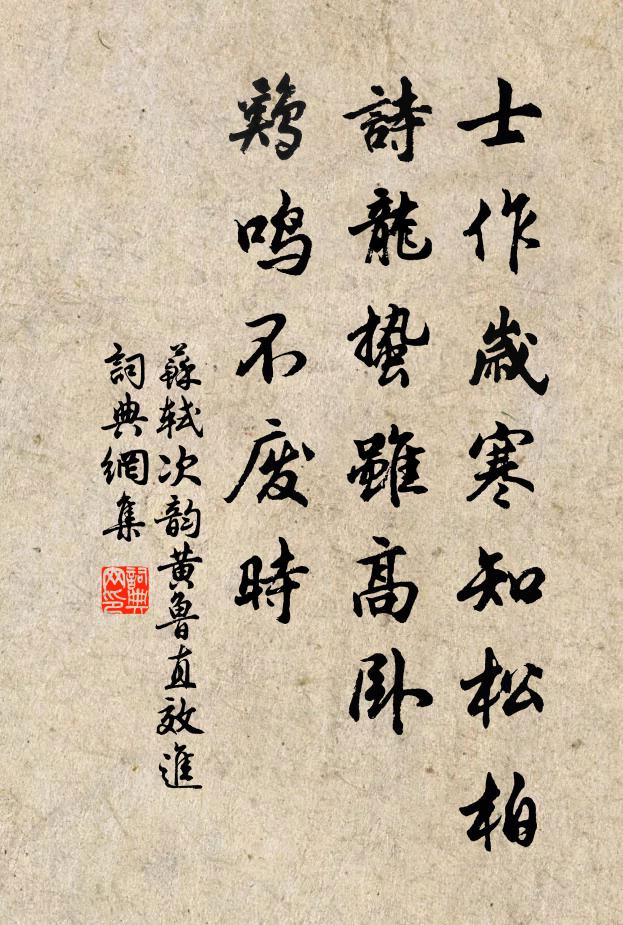 士作歲寒知松柏
詩龍蟄雖高臥
鶏鳴不廢時
蘇軾次韵黃魯直效進
詞典網集
詞典網印